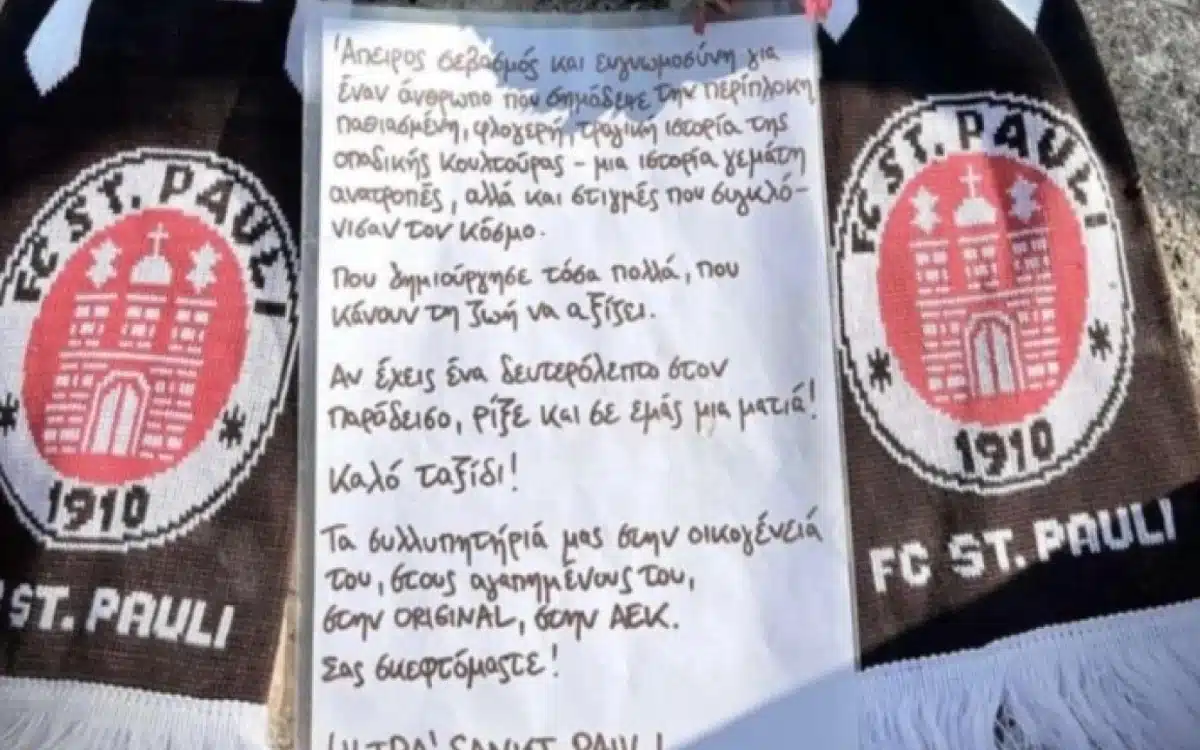 Άπειρος σεβασμός και ευγνωμοσύνη για
έναν άνθρωπο που σημάδεψε την περίπλοκη
παθιασμένη, φλογερή, τραγική ιστορία της
οπαδικής κουλτούρας – μια ιστορία γεμάτη
ανατροπές, αλλά και στιγμές που συγκλό-
νισαν τον κόσμο.
Που δημιούργησε τόσα πολλά, που
κάνουν τη ζωή να αξίζει.
Αν έχεις ένα δευτερόλεπτο στον
παράδεισο, ρίξε και σε εμάς μια ματιά!
Καλό ταξίδι!
Τα συλλυπητήριά μας στην οικογένειά
του, στους αγαπημένους του,
στην ORIGINAL, στην ΑΕΚ.
Σας σκεφτόμαστε!
'ULTRA' SANKT PAULI
FC ST. PAULI
1910
ST. PAULI
FC ST. PAULI
1910
FC ST. PAULI